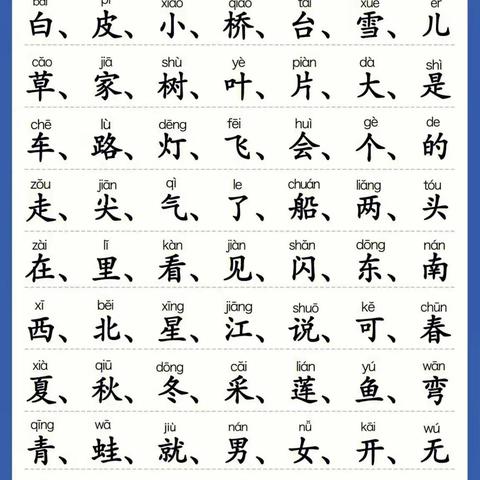 bái pí xiǎo qiáo tái xuě ér
白、皮、小、桥、台、雪、儿
cǎo jiā shù yè piàn dà shì
草、家、树、叶、片、大、是
chē lù dēng fēi huì gè de
车、路、灯、飞、会、个、的
zǒu jiān qì le chuán liǎng tóu
走、尖、气、了、船、两、头
zài lǐ kàn jiàn shǎn dōng nán
在、里、看、见、闪、东、南
xī běi xīng jiāng shuō kě chūn
西、北、星、江、说、可、春
xià qiū dōng cǎi lián yú wān
夏、秋、冬、采、莲、鱼、弯
qīng wā jiù nán nǚ kāi wú
青、蛙、就、男、女、开、无